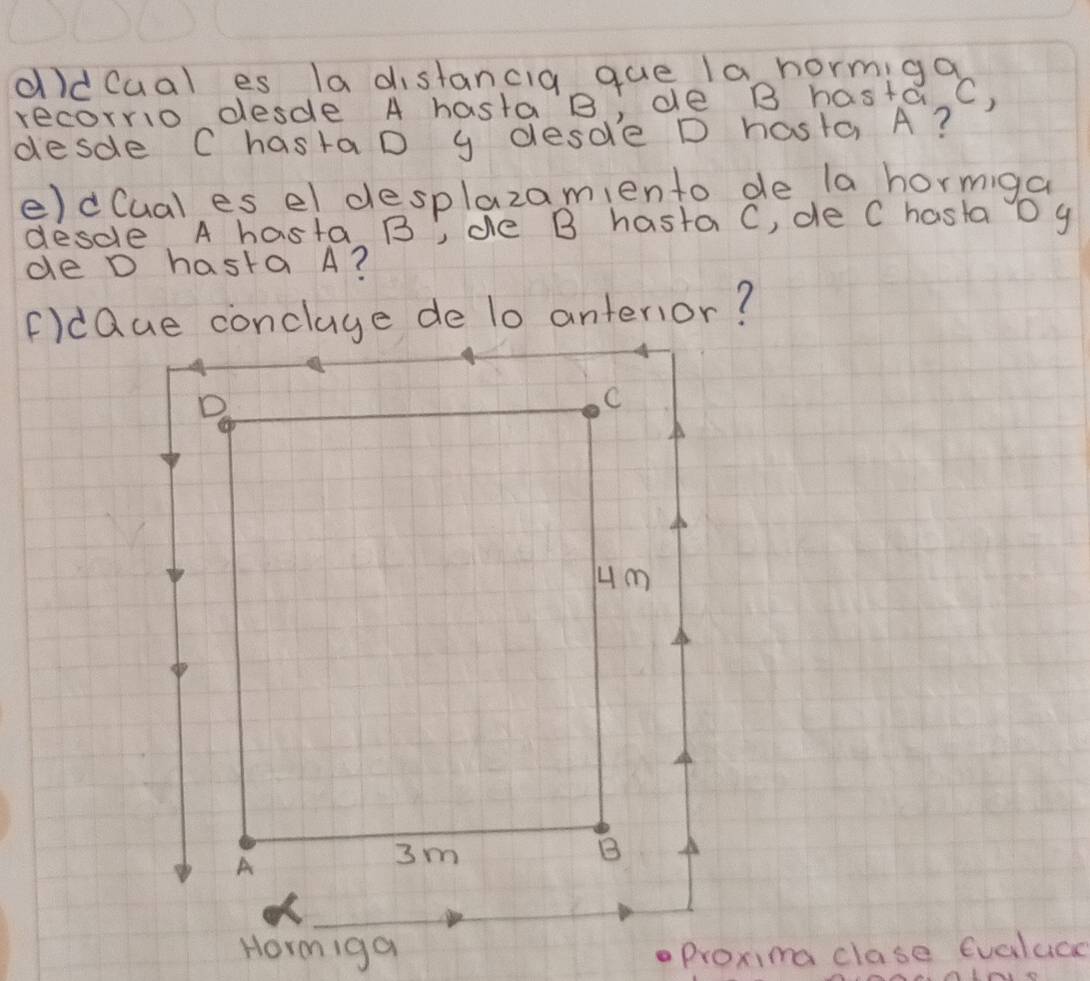 d)¿Cual es la distancia que la hormiga
recorrio desde A hasta B, de B hasta C,
desde C hasta D y desde D hasta A?
e)¿Cual es el desplazamiento de la hormiga
desde A hasta B, de B hasta C, de C hasta D y
de D hasta A?
f)¿Que concluye de lo anterior?
D
C
4m
A
3m
B
Hormiga
•Proxima clase